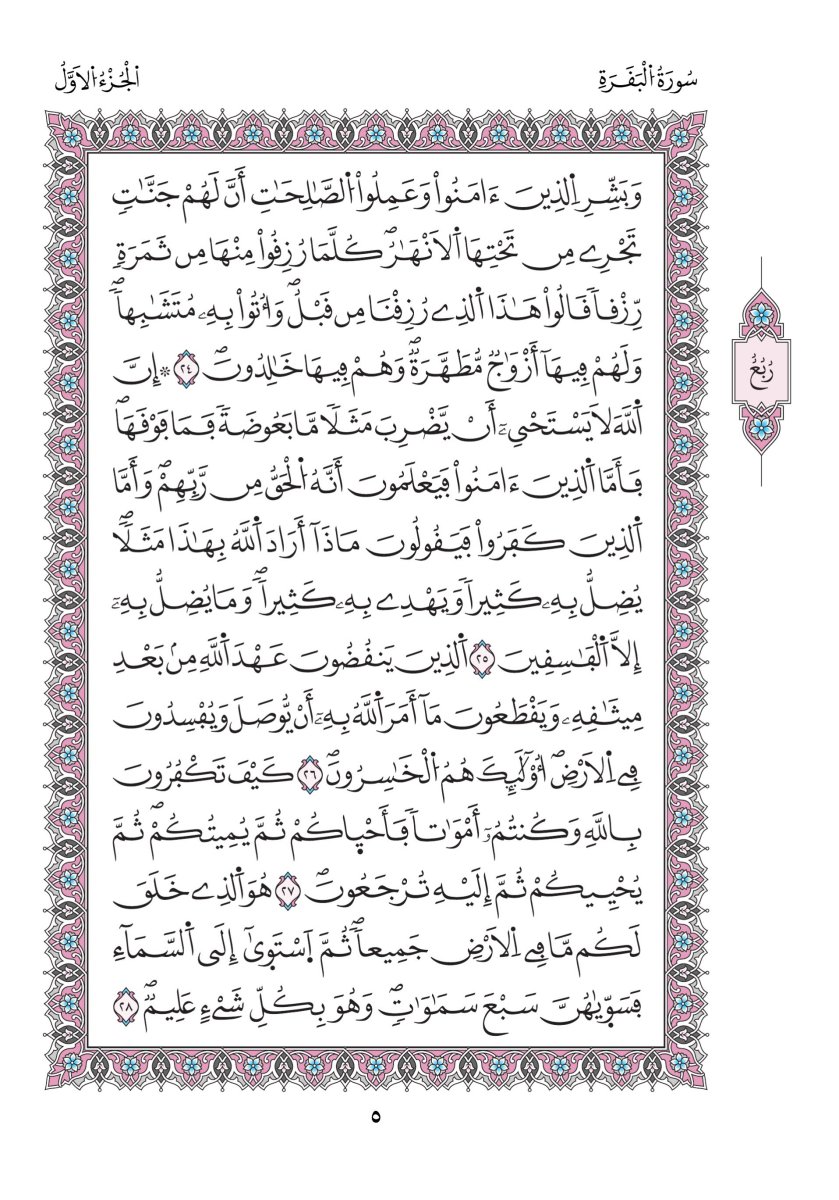 سُورَةُ اُ۬لْبَقَرَةِ
اُ۬لْجُزْءُ اُ۬لَاوَّلُ
وَبَشِّرِ اِ۬لذِينَ ءَامَنُواْ وَعَمِلُواْ اُ۬لصَّٰلِحَٰتِ أَنَّ لَهُمْ جَنَّٰتٖ
تَجْرِے مِن تَحْتِهَا اَ۬لَانْهَٰرُۖ كُلَّمَا رُزِقُواْ مِنْهَا مِن ثَمَرَةٖ
رِّزْقاٗ قَالُواْ هَٰذَا اَ۬لذِے رُزِقْنَا مِن قَبْلُۖ وَأُتُواْ بِهِۦ مُتَشَٰبِهاٗۖ
وَلَهُمْ فِيهَآ أَزْوَٰجٞ مُّطَهَّرَةٞۖ وَهُمْ فِيهَا خَٰلِدُونَۖ ٢٤ ۞ إِنَّ
اَ۬للَّهَ لَا يَسْتَحْيِۦٓ أَنْ يَّضْرِبَ مَثَلاٗ مَّا بَعُوضَةٗ فَمَا فَوْقَهَاۖ
فَأَمَّا اَ۬لذِينَ ءَامَنُواْ فَيَعْلَمُونَ أَنَّهُ اُ۬لْحَقُّ مِن رَّبِّهِمْۖ وَأَمَّا
اَ۬لذِينَ كَفَرُواْ فَيَقُولُونَ مَاذَآ أَرَادَ اَ۬للَّهُ بِهَٰذَا مَثَلاٗۖ
يُضِلُّ بِهِۦ كَثِيراٗ وَيَهْدِے بِهِۦ كَثِيراٗۖ وَمَا يُضِلُّ بِهِۦٓ
إِلَّا اَ۬لْفَٰسِقِينَ ٢٥ اَ۬لذِينَ يَنقُضُونَ عَهْدَ اَ۬للَّهِ مِنۢ بَعْدِ
مِيثَٰقِهِۦ وَيَقْطَعُونَ مَآ أَمَرَ اَ۬للَّهُ بِهِۦٓ أَنْ يُّوصَلَ وَيُفْسِدُونَ
فِے اِ۬لَارْضِۖ أُوْلَٰٓئِكَ هُمُ اُ۬لْخَٰسِرُونَۖ ٢٦ كَيْفَ تَكْفُرُونَ
بِاللَّهِ وَكُنتُمُۥٓ أَمْوَٰتاٗ فَأَحْيٰاكُمْ ثُمَّ يُمِيتُكُمْۖ ثُمَّ
يُحْيِيكُمْ ثُمَّ إِلَيْهِ تُرْجَعُونَۖ ٢٧ هُوَ اَ۬لذِے خَلَقَ
لَكُم مَّا فِے اِ۬لَارْضِ جَمِيعاٗۖ ثُمَّ اَ۪سْتَو۪ىٰٓ إِلَى اَ۬لسَّمَآءِ
فَسَوّ۪يٰهُنَّ سَبْعَ سَمَٰوَٰتٖۖ وَهُوَ بِكُلِّ شَےْءٍ عَلِيمٞۖ ٢٨
رُبُعُ
٥